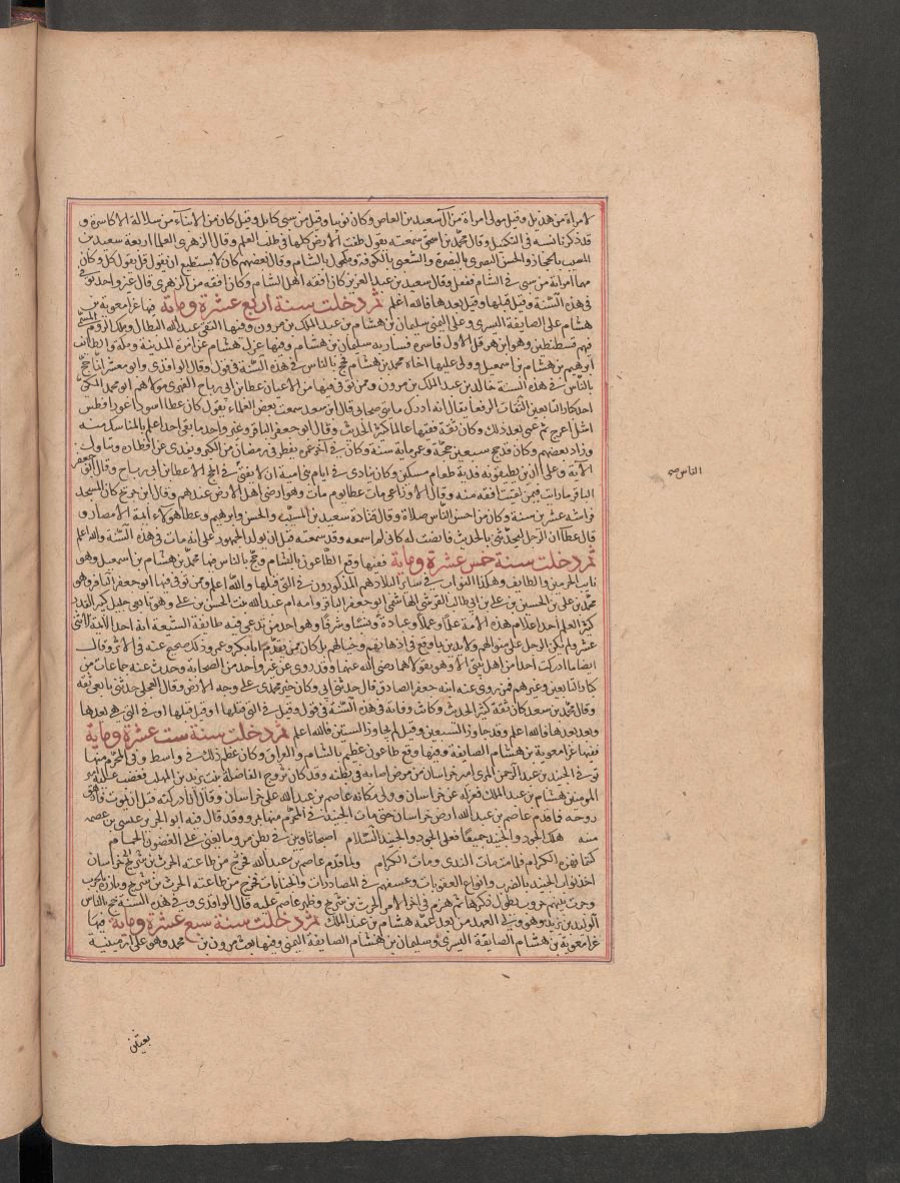 لامراة من هذيل وقيل مولى امراة من آل سعيد بن العاص وكان نوبيا وقيل من سبى كابل وقيل كان من الابناء من سلالة الاكاسرة و
قد ذكرنا نسبه فى التكميل وقال محمد بن اسحق سمعته يقول طفت الارض كلها فى طلب العلم وقال الزهرى العلماء اربعة سعيد بن
المسيب بالحجاز والحسن البصرى بالبصرة والشعبى بالكوفة ومكحول بالشام وقال بعضهم كان لا يستطيع ان يقول قل يقول كل وكان
مهما امر به من شى فى الشام ففعل وقال سعيد بن عبد العزيز كان افقه اهل الشام وكان افقه من الزهرى قال غير واحد توفى
فى هذه السنة وقيل قبلها وقيل بعدها فالله اعلم ثم دخلت سنة اربع عشرة وماية فيها غزا معوية بن
هشام على الصايفة اليسرى وعلى اليمنى سليمان بن هشام بن عبد الملك بن مرون وفيها التقى عبد الله البطال وملك الروم المسمى
فيهم قسطنطين وهو ابن هرقل الاول فاسره فسار به سليمان بن هشام وفيها عزل هشام عن امرة المدينة ومكة والطائف
ابرهيم بن هشام بن اسمعيل وولى عليها اخاه محمد بن هشام فحج بالناس فى هذه السنة فى قول وقال الواقدى وابو معشر انما حج
بالناس فى هذه السنة خالد بن عبد الملك بن مرون وممن توفى فيها من الاعيان عطا بن ابى رباح الفهرى مولاهم ابو محمد المكى
احد كبار التابعين الثقات الرفعا يقال انه ادرك مايتى صحابى قال ابن سعد سمعت بعض العلماء يقول كان عطا اسود اعور افطس
اشل اعرج ثم عمى بعد ذلك وكان ثقة فقيها عالما كثير الحديث وقال ابو جعفر الباقر وغير واحد ما بقى احد اعلم بالمناسك منه
وزاد بعضهم وكان قد حج سبعين حجة وعمر ماية سنة وكان فى آخر عمره يفطر فى رمضان من الكبر ويفدى عن افطاره ويتاول
الآية وعلى الذين يطيقونه فدية طعام مسكين وكان ينادى فى ايام بنى امية ان لا يفتى فى الحج الا عطا بن ابى رباح وقال ابو جعفر
الباقر ما رايت فيمن لقيت افقه منه وقال الاوزاعى مات عطا يوم مات وهو ارضى اهل الارض عندهم وقال ابن جريج كان المسجد
فراشه عشرين سنة وكان من احسن الناس صلاة وقال قتادة سعيد بن المسيب والحسن وابرهيم وعطا هولاء ايمة الامصار و
قال عطا ان الرجل ليحدثنى بالحديث فانصت له كانى لم اسمعه وقد سمعته قبل ان يولد الجمهور على انه مات فى هذه السنة والله اعلم
ثم دخلت سنة خمس عشرة وماية ففيها وقع الطاعون بالشام وحج بالناس فيها محمد بن هشام بن اسمعيل وهو
نايب الحرمين والطايف وهكذا النواب فى ساير البلاد هم المذكورون فى التى قبلها والله اعلم وممن توفى فيها ابو جعفر الباقر وهو
محمد بن على بن الحسين بن على بن ابى طالب القرشى الهاشمى ابو جعفر الباقر وامه ام عبد الله بنت الحسن بن على وهو تابعى جليل كبير القدر
كثير العلم احد اعلام هذه الامة علما وعملا وعبادة ونسبا وشرفا وهو احد من تدعى فيه طايفة الشيعة انه احد الائمة الاثنى
عشر ولم يكن الرجل على منوالهم ولا يدين بما وقع فى اذهانهم وخيالهم بل كان ممن يقدم ابا بكر وعمر وذلك صحيح عنه فى الاثر وقال
ايضا ما ادركت احدا من اهل بيتى الا وهو يتولاهما رضى الله عنهما وقد روى عن غير واحد من الصحابة وحدث عنه جماعات من
كبار التابعين وغيرهم فمن روى عنه ابنه جعفر الصادق قال حدثنى ابى وكان خير محمدى على وجه الارض وقال العجلى حدثنى تابعى ثقة
وقال محمد بن سعد كان ثقة كثير الحديث وكانت وفاته فى هذه السنة فى قول وقيل فى التى قبلها او قبل قبلها او فى التى هى بعدها
وبعد بعدها فالله اعلم وقد جاوز السبعين وقيل لم يجاوز الستين فالله اعلم ثم دخلت سنة ست عشرة وماية
ففيها غزا معوية بن هشام الصايفة وفيها وقع طاعون عظيم بالشام والعراق وكان عظم ذلك فى واسط وفى المحرم منها
توفى الجنيد بن عبد الرحمن المرى امير خراسان من مرض اصابه فى بطنه وقد كان تزوج الفاضلة بنت يزيد بن المهلب فغضب عليه امير
المومنين هشام بن عبد الملك فعزله عن خراسان وولى مكانه عاصم بن عبد الله على خراسان وقال ان ادركته قبل ان يموت فازهق
روحه فما قدم عاصم بن عبد الله ارض خراسان حتى مات الجنيد فى المحرم منها بمرو وقد قال فيه ابو الجرير عيسى بن عصمه
منه هلك الجود والجنيد جميعا فعلى الجود والجنيد السلام اصبحا ثاويين فى بطن مرو ما تغنى على الغصون الحمام
كنتما نزهة الكرام فلما مت مات الندى ومات الكرام ولما قدم عاصم بن عبد الله فخرج من طاعته الحرث بن شريح خراسان
اخذ نواب الجنيد بالضرب وانواع العقوبات وعسفهم فى المصادرات والجنايات فخرج من طاعته الحرث بن شريح وبارزه بالحرب
وجرت بينهم حروب يطول ذكرها ثم هزم فى آخر الامر الحرث بن شريح وظهر عاصم عليه قال الواقدى وفى هذه السنة حج بالناس
الوليد بن يزيد وهو ولى العهد من بعد عمه هشام بن عبد الملك ثم دخلت سنة سبع عشرة وماية فيها
غزا معوية بن هشام الصايفة اليسرى وسليمان بن هشام الصايفة اليمنى وفيها بعث مرون بن محمد وهو على ارمينية
الناس صح
بعثين